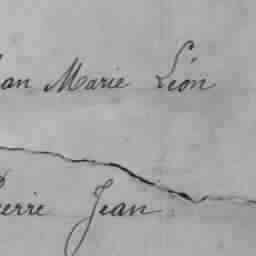 an Marie Léon
ierre Jean